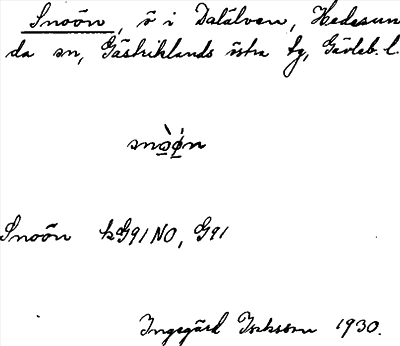 Snoön, ö i Dalälven, Hedesun
da sn, Gästriklands östra tg, Gävleb. l.
Snoön kG91 NO, G91
Ingegärd Isaksson 1930.